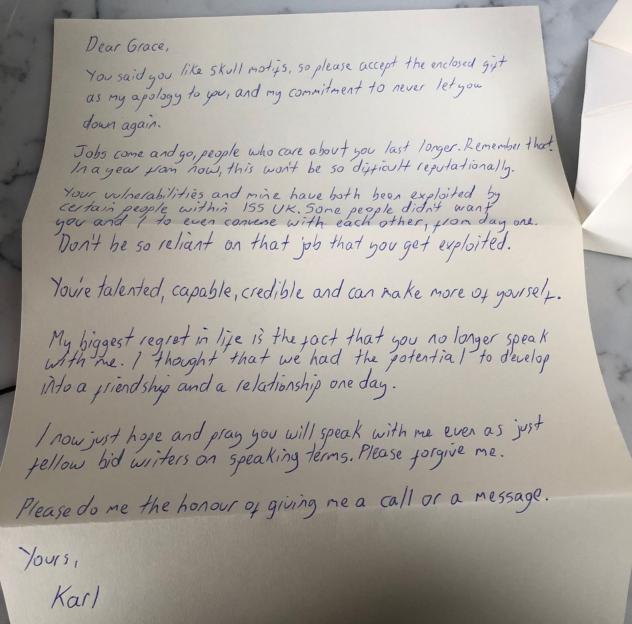 Dear Grace,
You said you like skull motifs, so please accept the enclosed gift
as my apology to you, and my commitment to never let you
down again.
Jobs come and go, people who care about you last longer. Remember that.
In a year from now, this won't be so difficult reputationally.
Your vulnerabilities and mine have both been exploited by
certain people within ISS UK. Some people didn't want
you and I to even converse with each other, from day one.
Don't be so reliant on that job that you get exploited.
You're talented, capable, credible and can make more of yourself.
My biggest regret in life is the fact that you no longer speak
with me. I thought that we had the potential to develop
into a friendship and a relationship one day.
I now just hope and pray you will speak with me even as just
fellow bid writers on speaking terms. Please forgive me.
Please do me the honour of giving me a call or a message.
Yours,
Karl